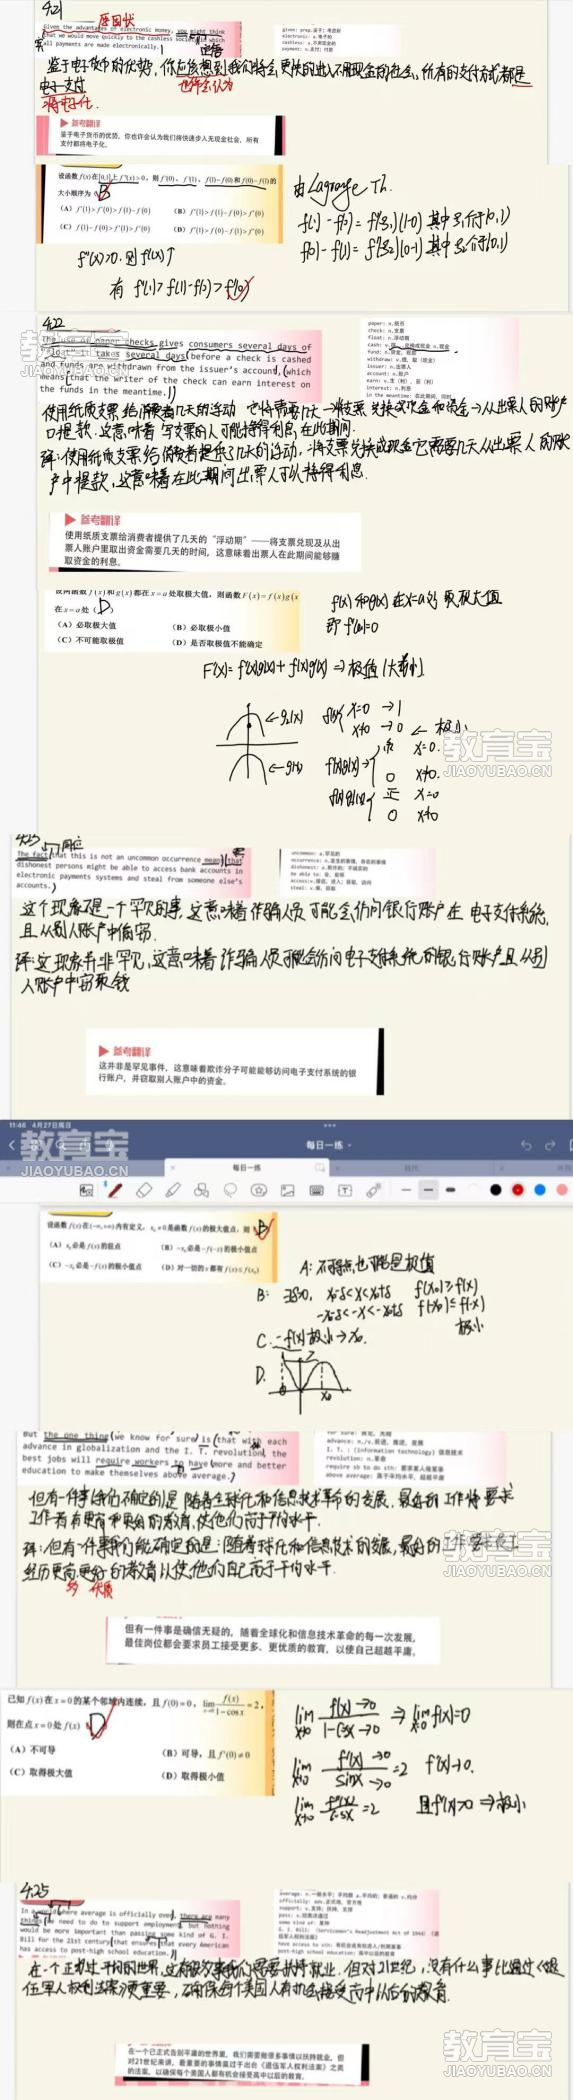 4.21
Given the advantages of electronic money, you might think
that we would move quickly to the cashless society in which
all payments are made electronically.
given: prep.鉴于；考虑到
electronic: a.电子的
cashless: a.不用现金的
payment: n.支付；付款
鉴于电子货币的优势，你应该想到我们将会更快的进入不用现金的社会，所有的支付方式都是
电子支付
也许会认为
将电子化.
参考翻译
鉴于电子货币的优势，你也许会认为我们将快速步入无现金社会，所有
支付都将电子化。
设函数 f(x) 在[0,1]上 f"(x)>0，则 f'(0)、f'(1)、f(1)−f(0)和 f(0)−f(1)的
大小顺序为 B
(A) f'(1)>f'(0)>f(1)−f(0)
(B) f'(1)>f(1)−f(0)>f'(0)
(C) f(1)−f(0)>f'(1)>f'(0)
(D) f'(1)>f(0)−f(1)>f'(0)
由 Lagrange Th.
f(1)-f(0)=f'(ξ1)(1-0) 其中ξ1介于(0,1)
f(0)-f(1)=f'(ξ2)(0-1) 其中ξ2介于(0,1)
f"(x)>0. 则 f'(x)↑
有 f'(1)>f(1)-f(0)>f'(0)
教育宝
JIAOYUBAO.CN
4.22
The use of paper checks gives consumers several days of
"float"-it takes several days before a check is cashed
and funds are withdrawn from the issuer's account, which
means that the writer of the check can earn interest on
the funds in the meantime.
paper: n.纸币
check: n.支票
float: n.浮动期
fund: n.资金，现款
withdraw: v.提，取（现金）
issuer: n.出票人
account: n.账户
earn: v.生（利），获（利）
interest: n.利息
in the meantime: 在此期间，同时
译：使用纸质支票给消费者提供了几天的浮动，将支票兑换成现金它需要几天从出票人的账
户中提款，这意味着在此期间出票人可以获得利息.
参考翻译
使用纸质支票给消费者提供了几天的“浮动期”——将支票兑现及从出
票人账户里取出资金需要几天的时间，这意味着出票人在此期间能够赚
取资金的利息。
设两函数 f(x) 和 g(x) 都在 x=a 处取极大值，则函数 F(x)=f(x)g(x
在 x=a 处（D）
(A) 必取极大值
(B) 必取极小值
(C) 不可能取极值
(D) 是否取极值不能确定
f(x)和g(x)在x=a处 取极大值
即 f'(a)=0
F'(x)=f'(x)g(x)+f(x)g'(x) ⇒ 极值
教育宝
JIAOYUBAO.CN
4.23
The fact that this is not an uncommon occurrence means that
dishonest persons might be able to access bank accounts in
electronic payments systems and steal from someone else's
accounts.
uncommon: a.罕见的
occurrence: n.发生的事情，存在的事物
dishonest: a.欺诈的；不诚实的
be able to: 会，能够
access:v.接近，进入；获取，访问
steal: v.偷，窃取
这个现象不是一个罕见的事，这意味着诈骗人员可能会访问银行账户在 电子支付系统，
且从别人账户中偷窃.
译：这现象并非罕见，这意味着诈骗人员可能会访问电子支付系统的银行账户且从别
人账户中窃取钱
参考翻译
这并非是罕见事件，这意味着欺诈分子可能能够访问电子支付系统的银
行账户，并窃取别人账户中的资金。
11:46 4月27日周日
教育宝
JIAOYUBAO.CN
每日一练
每日一练
设函数 f(x) 在(−∞,+∞)内有定义，x₀≠0是函数 f(x) 的极大值点，则 B
(A) x₀必是 f(x) 的驻点
(B) −x₀必是 −f(−x) 的极小值点
(C) −x₀必是 −f(x) 的极小值点
(D) 对一切的 x 都有 f(x)≤f(x₀)
A: 不可导点也可能是极值
B: ∃δ>0, x₀-δ<x<x₀+δ f(x₀)≥f(x)
极小
C. -f(x) 极小→x₀.
D.
But the one thing we know for sure is that with each
advance in globalization and the I. T. revolution, the
best jobs will require workers to have more and better
education to make themselves above average.
advance: n./v.前进，推进，发展
I. T. : (information technology) 信息技术
revolution: n.革命
require sb to do sth: 要求某人做某事
above average: 高于平均水平，超越平庸
译：但有一件事我们能确定的是：随着全球化和信息技术的发展，最好的工作要求员工
经历更高更好的教育以使他们自己高于平均水平.
优质
教育宝
JIAOYUBAO.CN
但有一件事是确信无疑的，随着全球化和信息技术革命的每一次发展，
最佳岗位都会要求员工接受更多、更优质的教育，以使自己超越平庸。
已知 f(x) 在 x=0 的某个邻域内连续，且 f(0)=0，lim x→0 f(x)/(1−cosx)=2，
则在点 x=0 处 f(x) D
(A) 不可导
(B) 可导，且 f'(0)≠0
(C) 取得极大值
(D) 取得极小值
lim x→0 f(x)→0/1-cosx→0 ⇒ lim x→0 f(x)=0
lim x→0 f'(x)→0/sinx→0=2 f'(x)→0.
lim x→0 f"(x)/cosx=2 且f"(x)>0 ⇒极小
4.25
In a world where average is officially over, there are many
things we need to do to support employment, but nothing
would be more important than passing some kind of G. I.
Bill for the 21st century that ensures that every American
has access to post-high school education.
average: n.一般水平；平均数 a.平均的；普通的 v.均分
officially: adv.正式地，官方地
support: v.支持；扶持，支撑
pass: v.经表决通过
some kind of: 某种
G. I. Bill: (Servicemen's Readjustment Act of 1944)《退
伍军人权利法案》
have access to sth: 有机会或有权进入/利用某事
post-high school education: 高中以后的教育
在一个已正式告别平庸的世界里，我们需要做很多事情以扶持就业，但
对21世纪来讲，最重要的事情莫过于出台《退伍军人权利法案》之类
的法案，以确保每个美国人都有机会接受高中以后的教育。
教育宝
JIAOYUBAO.CN